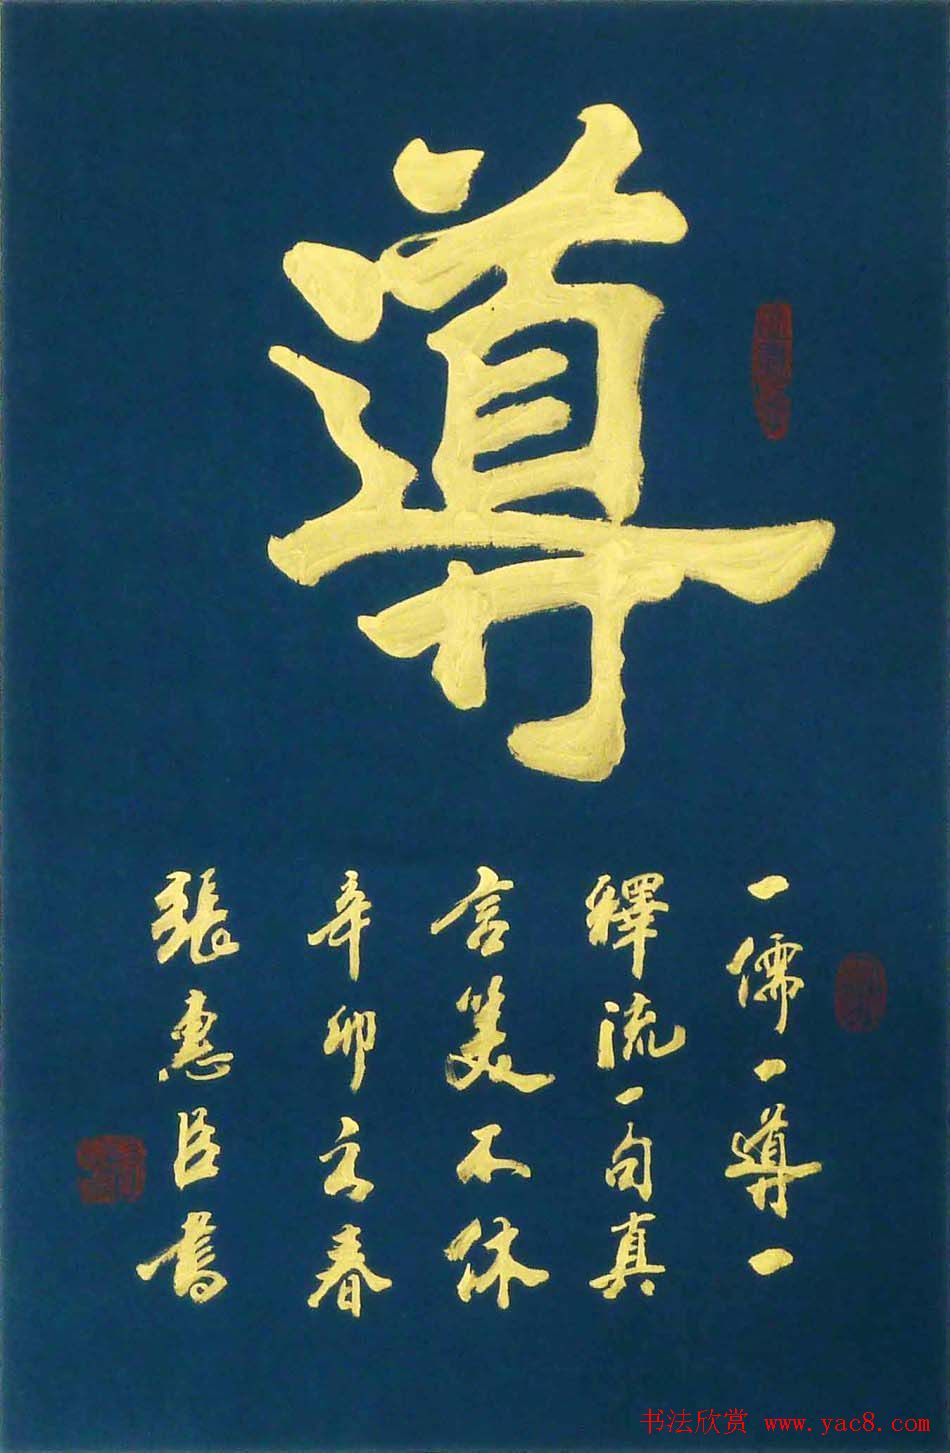 導
一儒一導一
釋流一句真
言笑不休
辛卯之春
張惠臣書
书法欣赏 www.yac8.com